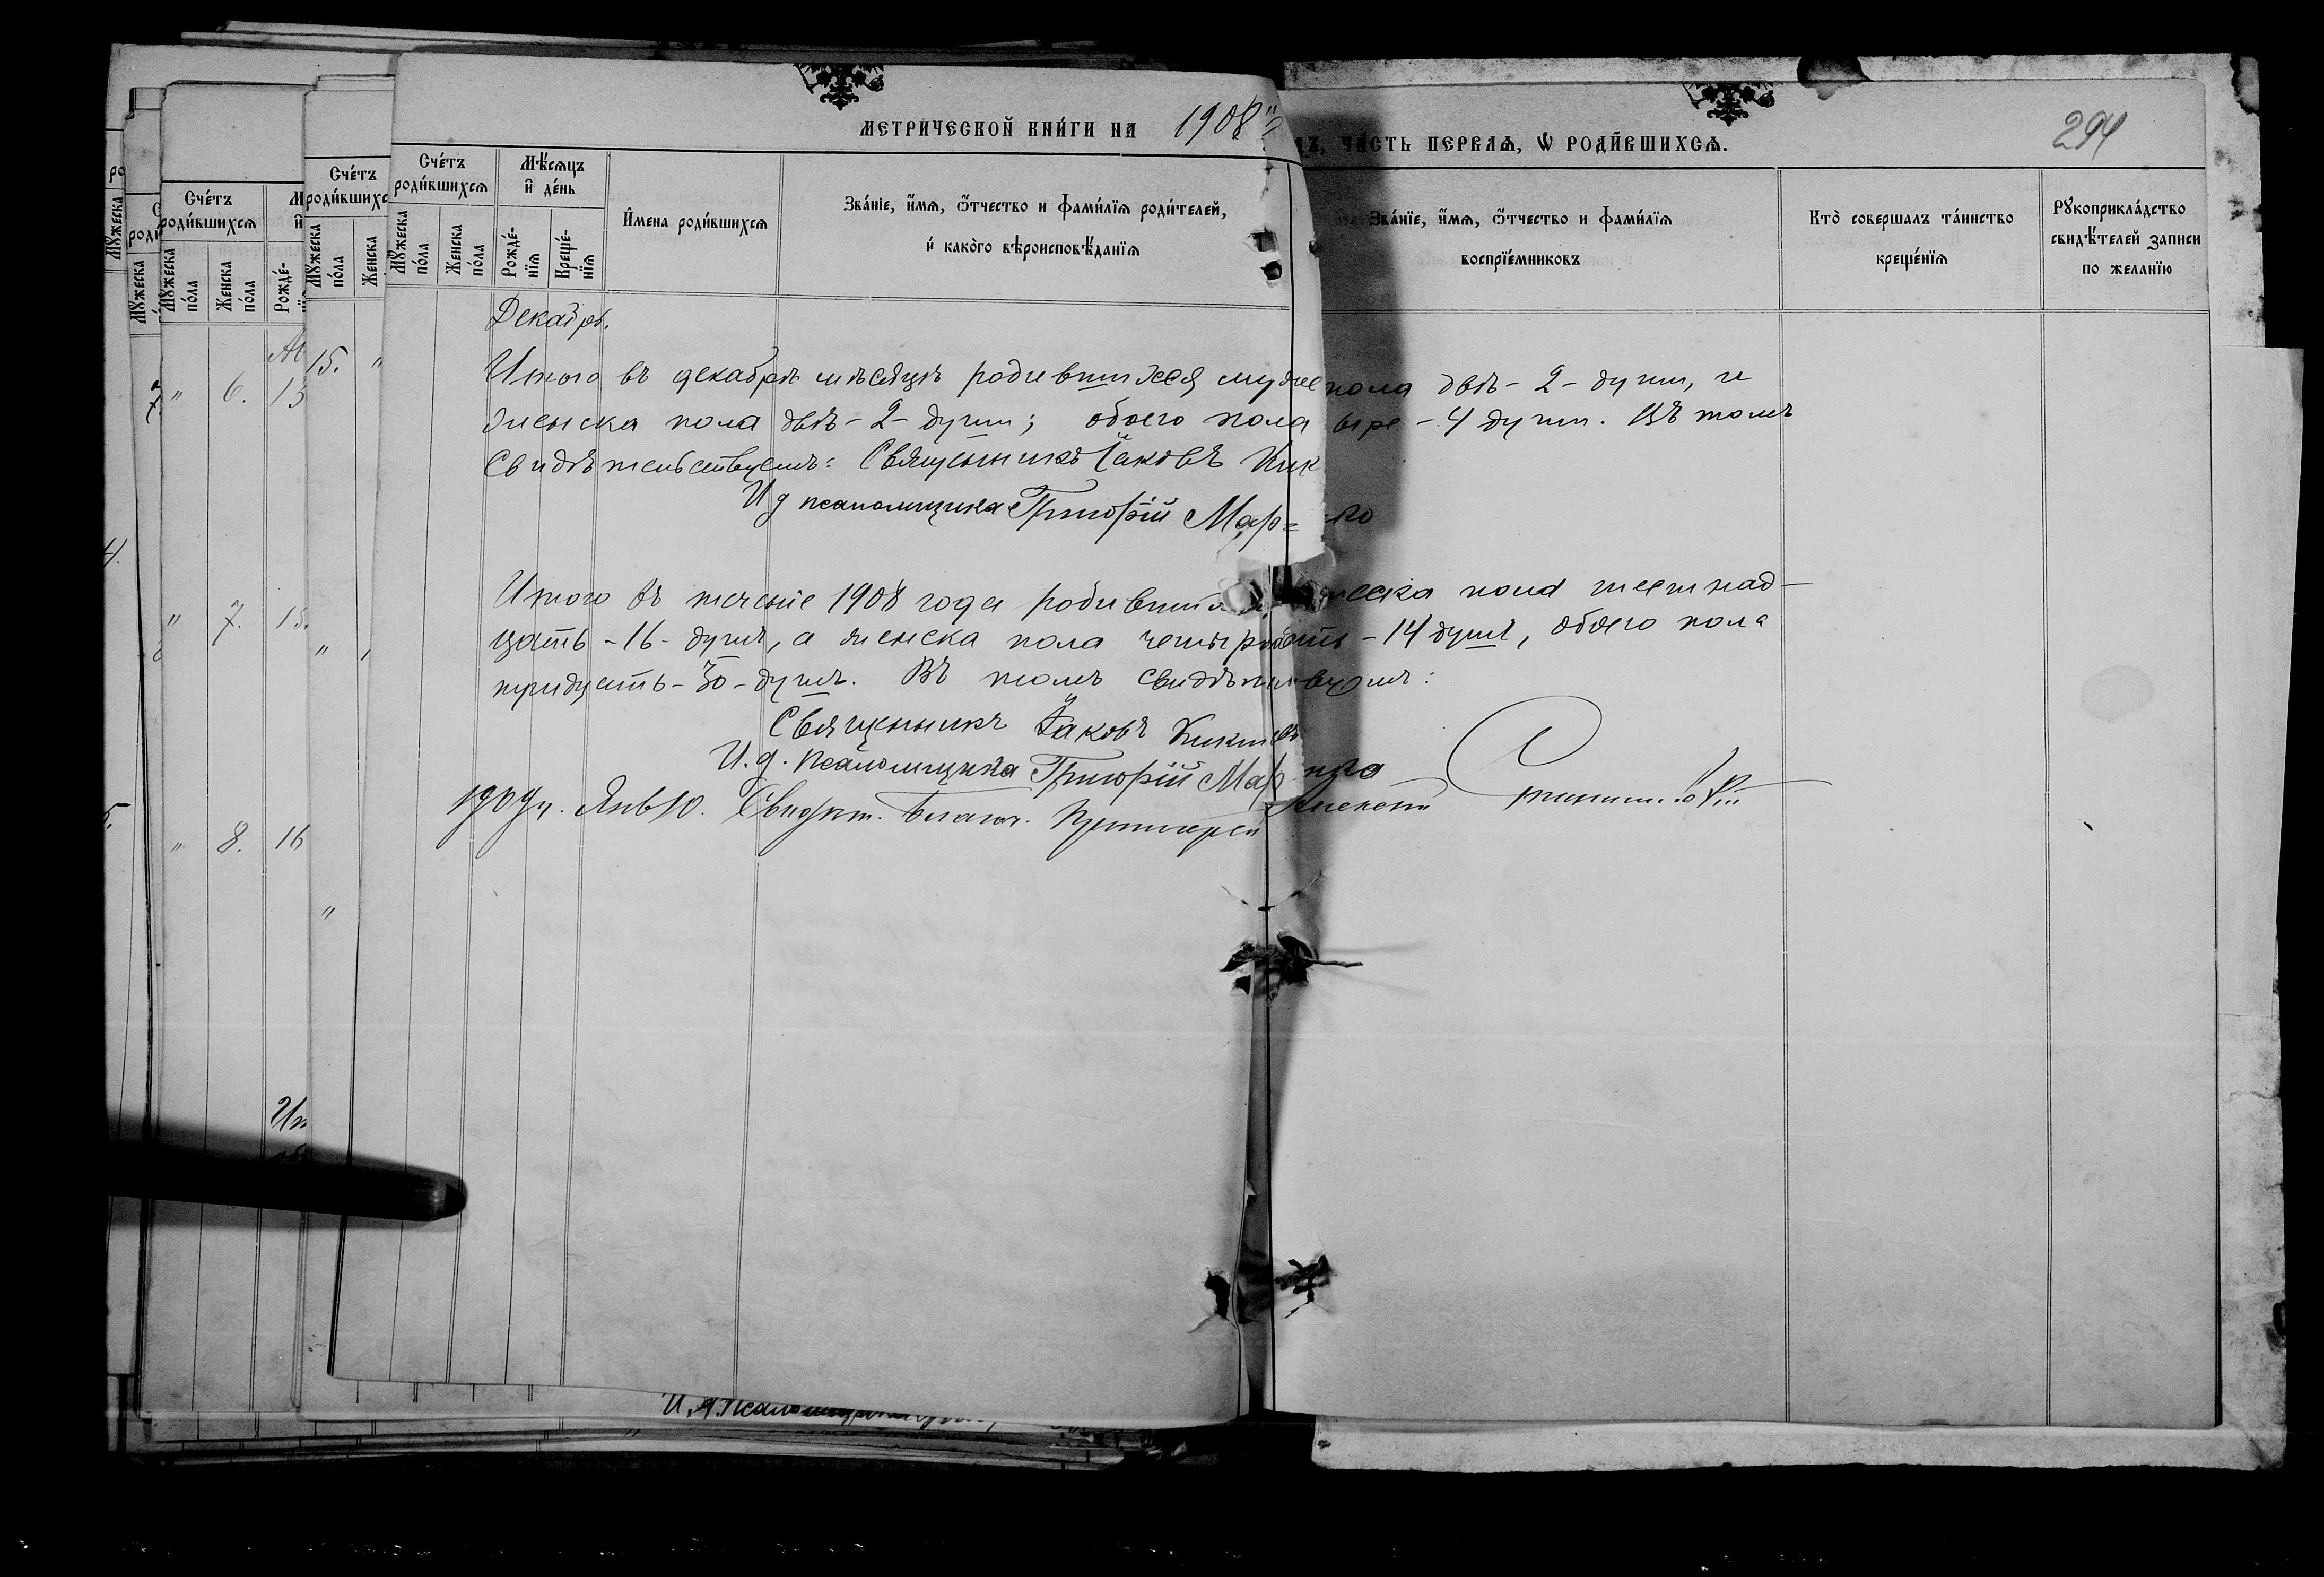 МЕТРИЧЕСКОЙ КНИ́ГИ НА 1908
ЧА́СТЬ ПЕРВАѦ, Ѡ РОДИ́ВШИХСѦ.
294
Сче́тъ роди́вшихсѧ
Мꙋжеска по́ла
Женска по́ла
Мѣ́сѧцъ и҆ де́нь
Рожде́-нїѧ
Креще́-нїѧ
И҆мена роди́вшихсѧ
Зва́нїе, и҆́мѧ, ѻ҆́тчество и фами́лїѧ роди́телей,
и҆ како́го вѣроисповѣ́данїѧ
Зва́нїе, и҆́мѧ, ѻ҆́тчество и фами́лїѧ
воспрїе́мниковъ
Кто̀ совершалъ та́инство
креще́нїѧ
Рꙋкоприкла́дство
свидѣ́телей записи
по желанїю
Декабрь.
Итого въ декабрѣ мѣсяцѣ родившихся муже пола двѣ - 2 - души, и
женска пола двѣ - 2 - души; обоего пола ыре - 4 души. Въ томъ
свидѣтельствуемъ: Священникъ Іаковъ Кик
И д псаломщика Григорій Мар= ко
Итого въ теченіе 1908 года родивши еска пола шестнад-
цать - 16 - душъ, а женска пола четыр ать - 14 душъ, обоего пола
тридцать - 30 - душъ. Въ томъ свидѣт вуемъ:
Священникъ Іаковъ
И. д. псаломщика Григорій Мар
1909 г. Янв 10. Свидѣт. Благоч. Протоіерей Алексій
Сче́тъ роди́вшихсѧ
Мꙋжеска по́ла
Женска по́ла
Рожде́-
" 6. 13
" 7. 15.
" 8. 16
15. "
И. д. Псаломщика